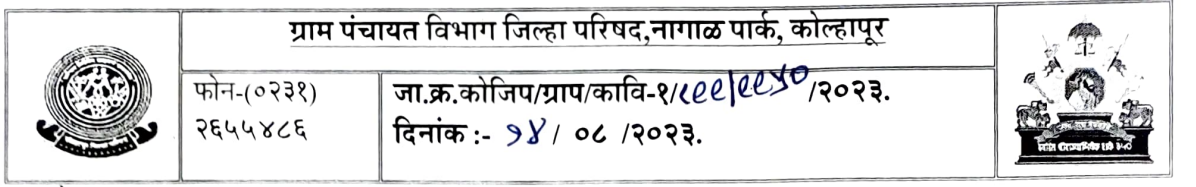 ग्राम पंचायत विभाग जिल्हा परिषद,नागाळ पार्क, कोल्हापूर
फोन-(०२३१)
२६५५४८६
जा.क्र.कोजिप/ग्राप/कावि-१/ /२०२३.
दिनांक :- १४/ ०८ /२०२३.